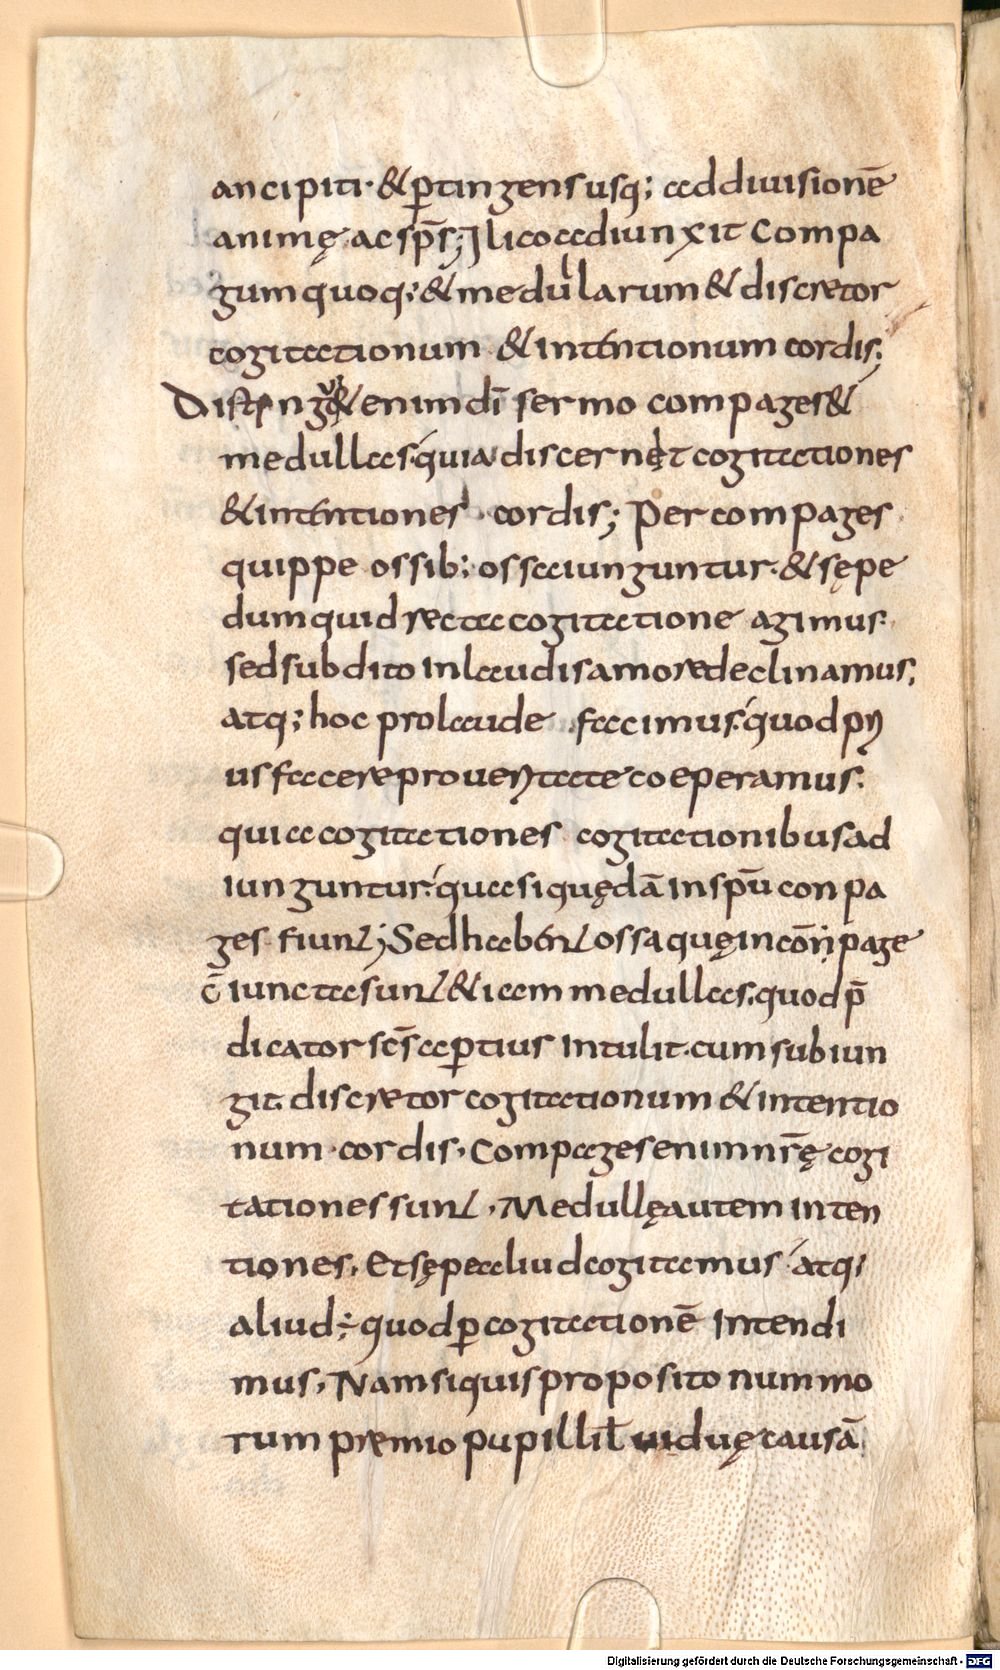 ancipiti· & ꝑtingens usq; ad diuisionē
animę ac sp̄s; Ilico adiunxit compa
gum quoq; & medullarum & discretor
cogitationum & intentionum cordis;
& enim dī sermo compages &
medullas· quia discernit cogitationes
& intentiones· cordis; Per compages
quippe ossib; ossa iunguntur· & sępe
dum quid recta cogitatione agimus·
sed subdito in laudis amore declinamus,
atq; hoc pro laude facimus· quod pri
us facere pro ueritate coeperamus·
quia cogitationes cogitationibus ad
iunguntur· quasi quędā in sp̄u conpa
ges fiunt; Sed habent ossa quę in
iuncta sunt & iam medullas· quod p̄
dicator sc̄s aꝑtius intulit· cum subiun
git· discretor cogitationum & intentio
num· cordis· Compages enim nr̄ę cogi
tationes sunt, Medullę autem inten
tiones, Et sępe aliud cogitamus atq;
aliud ÷ quod ꝑ cogitationē intendi
mus, Nam si quis proposito nummo
rum premio pupilli ł uiduę causā
Digitalisierung gefördert durch die Deutsche Forschungsgemeinschaft - DFG